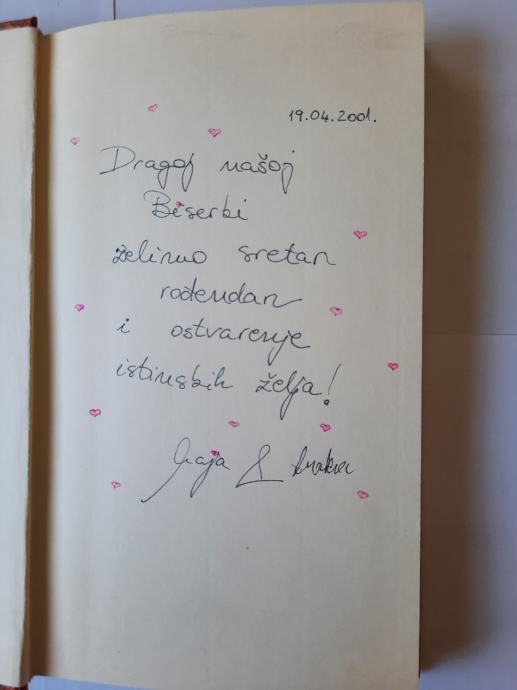 19.04.2001.
Dragoj našoj
Biserki
želimo sretan
rođendan
i ostvarenje
istinskih želja!
Maja &